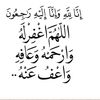 إِنَّا لِلَّٰهِ وَإِنَّا إِلَيْهِ رَاجِعُونَ
اللَّهُمَّ اغْفِرْ لَهُ
وَارْحَمْهُ وَعَافِهِ
وَاعْفُ عَنْهُ..